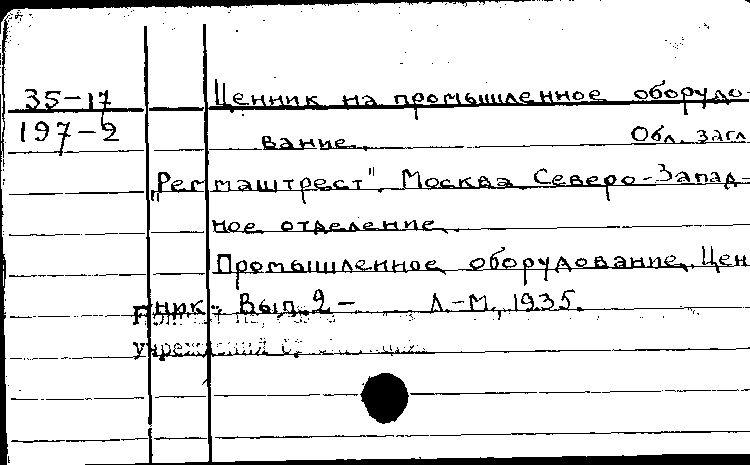 35-17 Ценник на промышленное оборудо-
197-2 вание. Обл. загл
„Регмаштрест". Москва Северо-Запад-
ное отделение.
Промышленное оборудование. Цен
ник. Вып. 2- Л.-М., 1935.